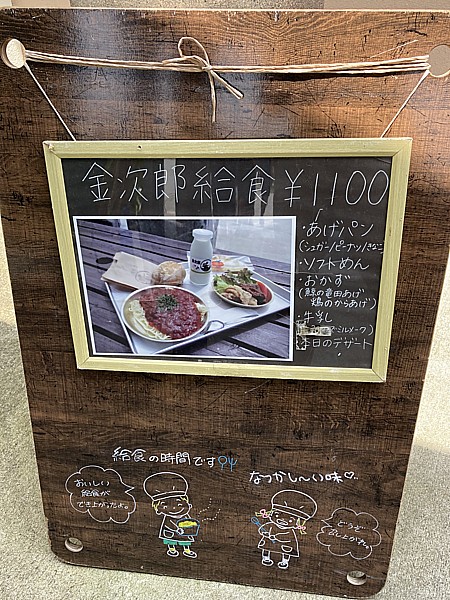 金次郎給食 ¥1100
・あげパン
(シュガー/ピーナツ/きなこ)
・ソフトめん
・おかず
(鯨の竜田あげ
鶏のからあげ)
・牛乳
ミルメーク)
本日のデザート
給食の時間です
おいしい
給食が
でき上がったよ。
なつかし〜い味♡
どうぞ
召し上がれ。